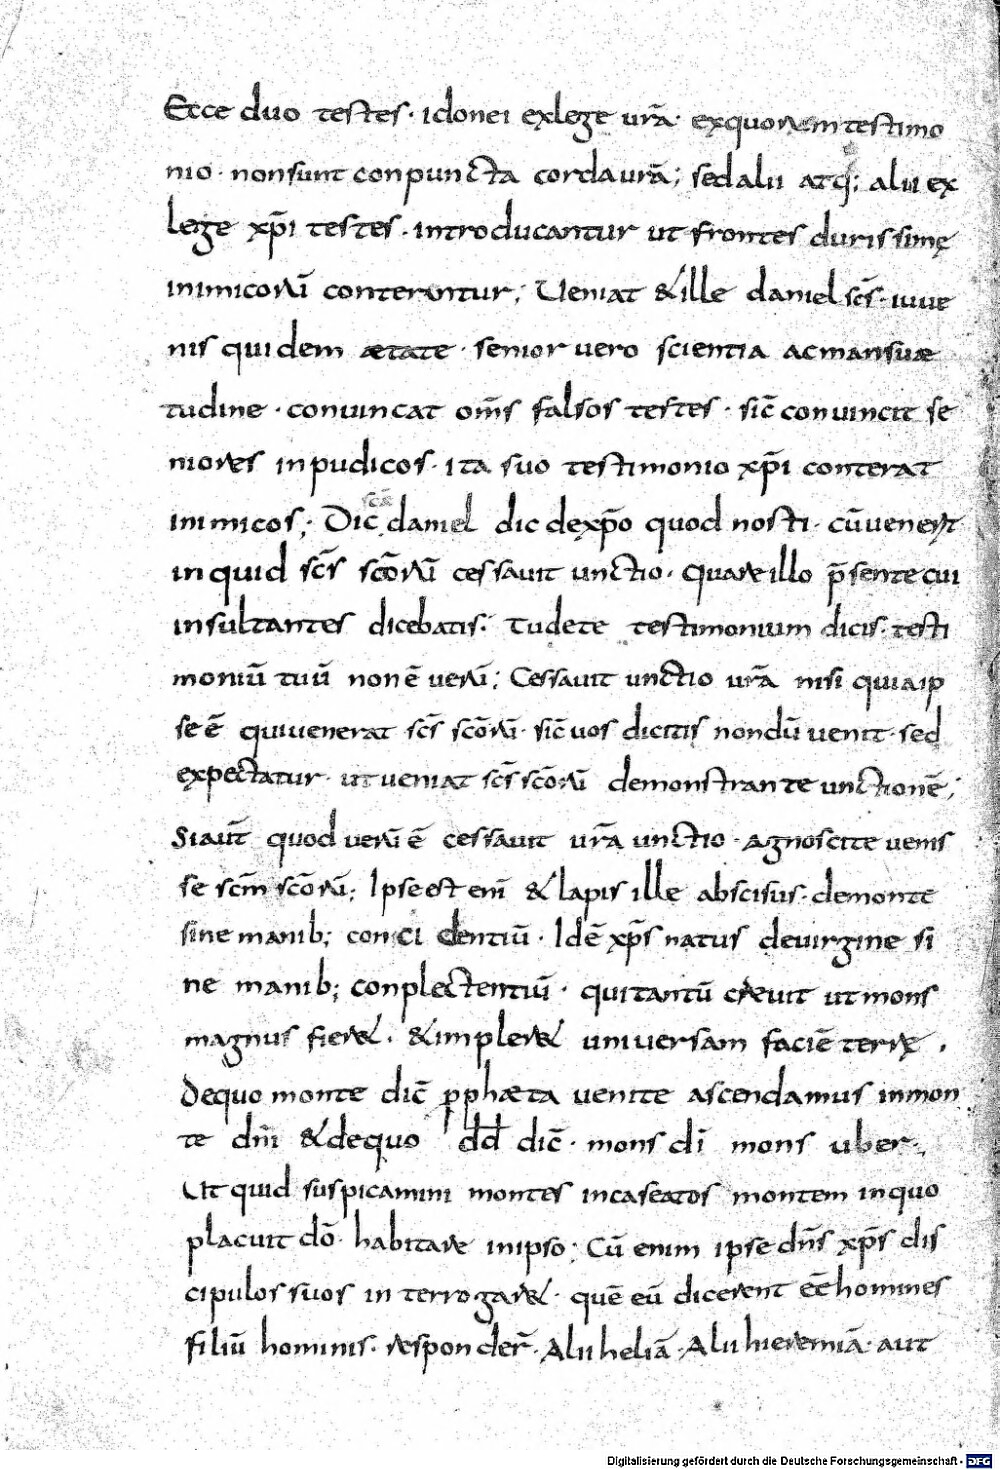 Ecce duo testes · idonei exlege ur̄a · exquorum testimo
nio · nonsunt conpuncta corda ur̄a; sed alii atq; alii ex
lege xp̄i testes · introducantur ut frontes durissimę
inimicorū conterantur; Veniat & ille daniel sc̄s · iuue
nis quidem ætate · senior uero scientia ac mansuæ
tudine · conuincat om̄s falsos testes · sic̄ conuincit se
niores inpudicos · ita suo testimonio xp̄i conterat
inimicos; Dic sc̄æ daniel dic dexp̄o quod nosti · cū uenerit
inquid sc̄s sc̄orū cessauit unctio · Quare illo p̄sente cui
insultantes dicebatis · tu dete testimonium dicis · testi
moniū tuū non ē uerū; Cessauit unctio ur̄a nisi quia ip
se ē qui uenerat sc̄s sc̄orū · sic̄ uos dicitis nondū uenit · sed
expectatur · ut ueniat sc̄s sc̄orū demonstrante unctionē;
Si aut̄ quod uerū ē cessauit ur̄a unctio · agnoscite uenis
se sc̄m sc̄orū; Ipse est eni̅ & lapis ille abscisus · demonte
sine manib; concidentiū · Idē xp̄s natus deuirgine si
ne manib; conplectentiū · qui tantū creuit ut mons
magnus fier& · & impler& uniuersam faciē terrę ·
Dequo monte dic̄ pphæta uenite ascendamus inmon
te dn̄i & dequo dd̄ dic̄ · mons di̅ mons uber ·
Ut quid suspicamini montes incaseatos montem inquo
placuit dō · habitare inipso; Cū enim ipse dn̄s xp̄s dis
cipulos suos interrogar& · quē eū dicerent eē homines
filiū hominis · responder̄ · Alii heliā · Alii hieremiā · aut
Digitalisierung gefördert durch die Deutsche Forschungsgemeinschaft - DFG